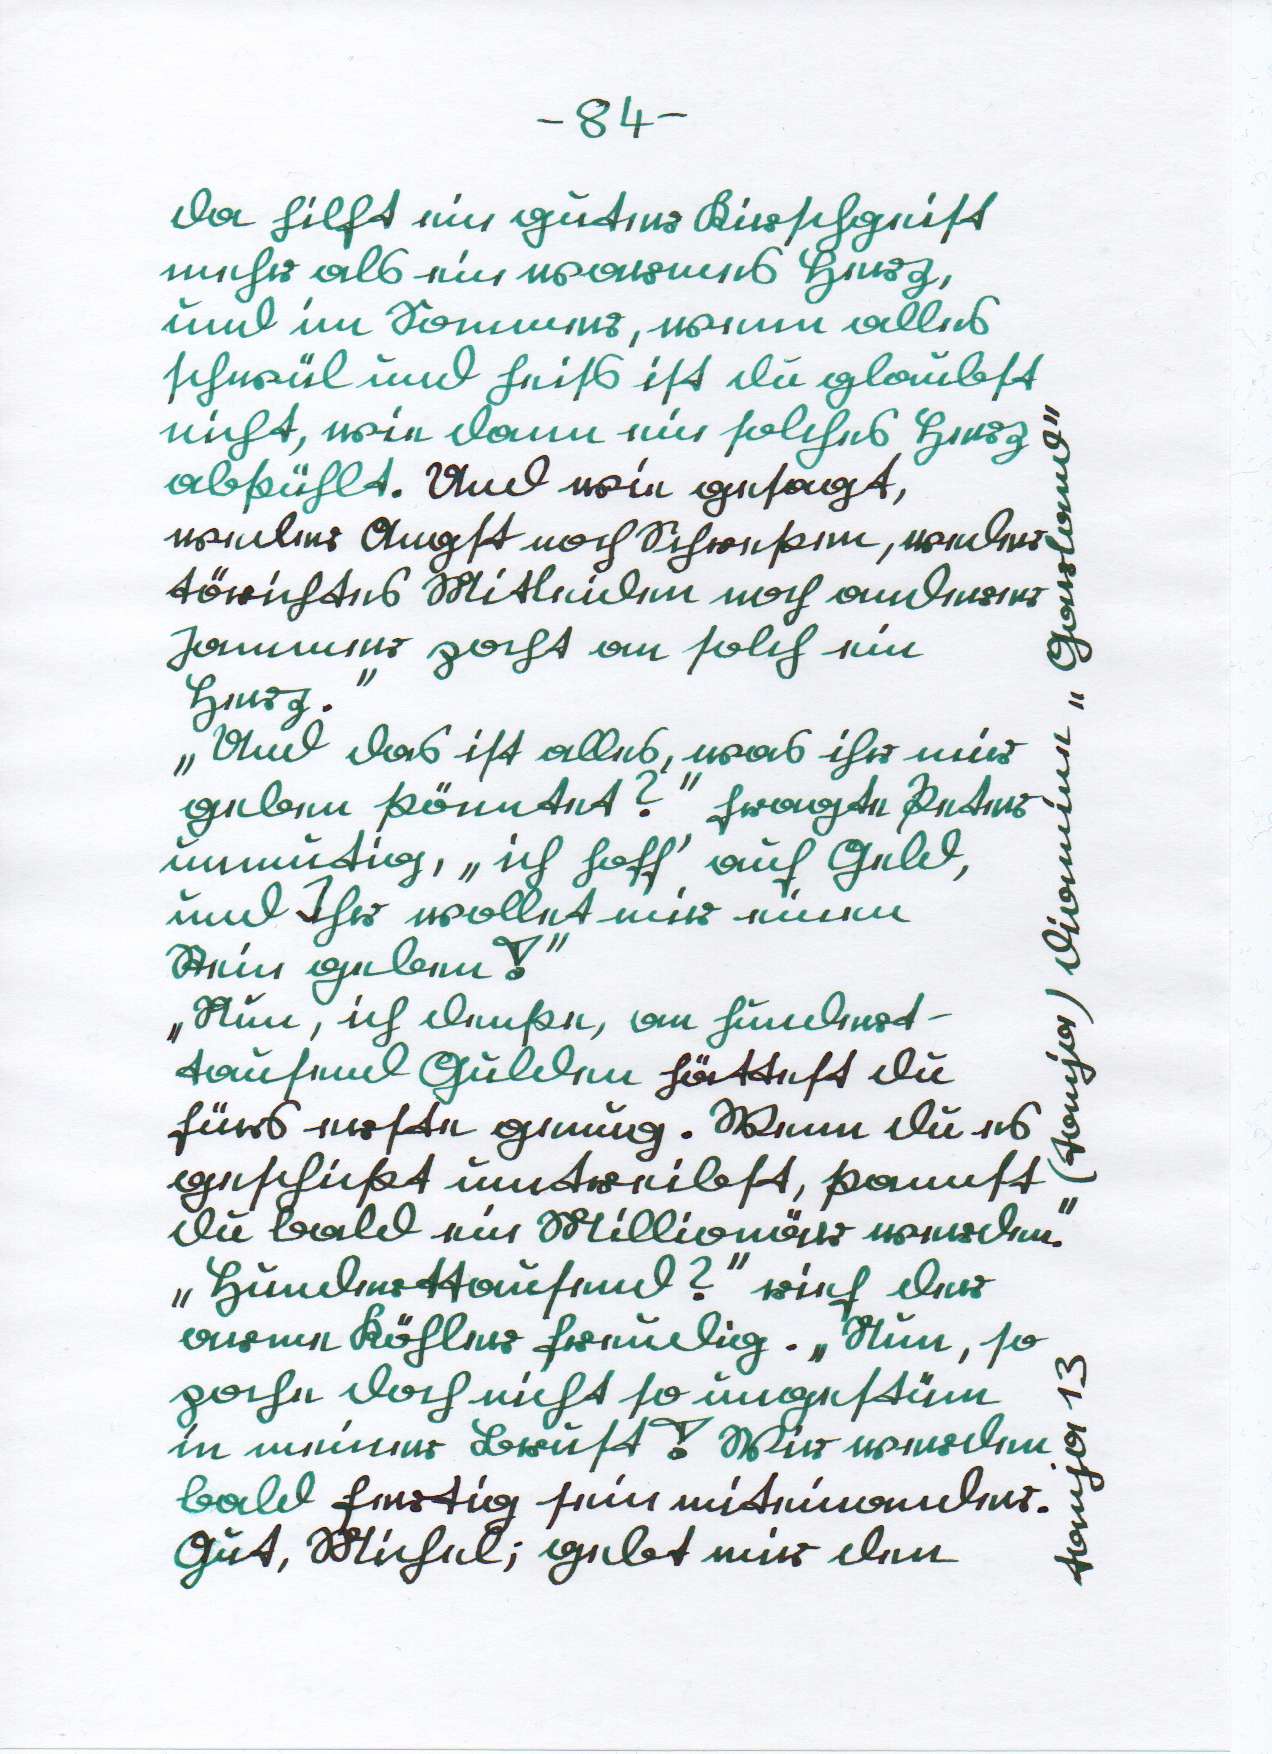 -84-
da hilft ein guter Kirschgeist
mehr als ein warmes Herz,
und im Sommer, wenn alles
schwül und heiß ist du glaubst
nicht, wie dann ein solches Herz
abkühlt. Und wie gesagt,
weder Angst noch Schrecken, weder
törichtes Mitleiden noch anderer
Jammer pocht an solch ein
Herz."
„Und das ist alles, was ihr mir
geben könntet?" fragte Peter
unmutig, „ich hoff' auf Geld,
und Ihr wollet mir einen
Stein geben!"
„Nun, ich denke, an hundert-
tausend Gulden hättest du
fürs erste genug. Wenn du es
geschickt umtreibst, kannst
du bald ein Millionär werden."
„Hunderttausend?" rief der
arme Köhler freudig. „Nun, so
poche doch nicht so ungestüm
in meiner Brust! Wir werden
bald fertig sein miteinander.
Gut, Michel; gebt mir den
tanja 13 (tanja) Diamine „Garland"